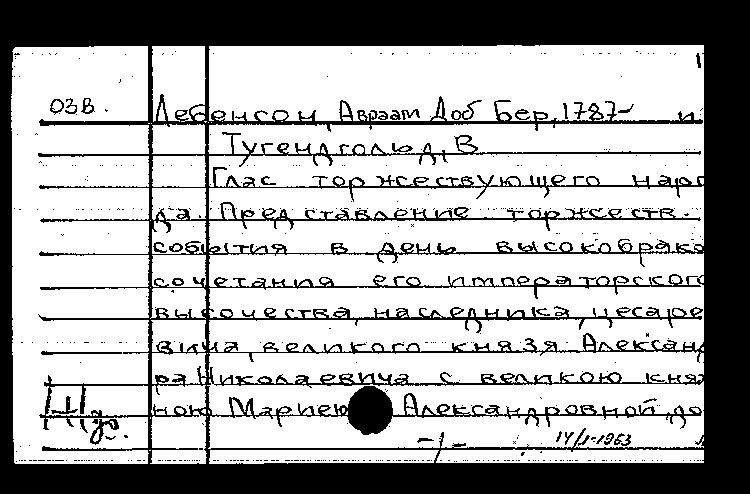 03В. Лебенсон, Авраам Доб Бер, 1787- и
Тугендгольд, В
Глас торжествующего наро
да. Представление торжеств.
события в день высокобрако
сочетания его императорского
высочества, наследника, цесаре
вича, великого князя Александ
ра Николаевича с великою кня
ною Мариею Александровной, до
-/- 14/I-1963